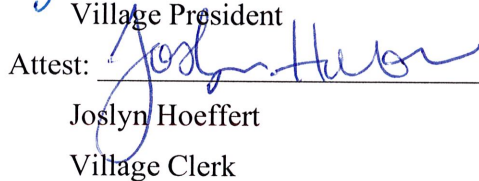 Village President
Attest: Joslyn Hoeffert
Joslyn Hoeffert
Village Clerk